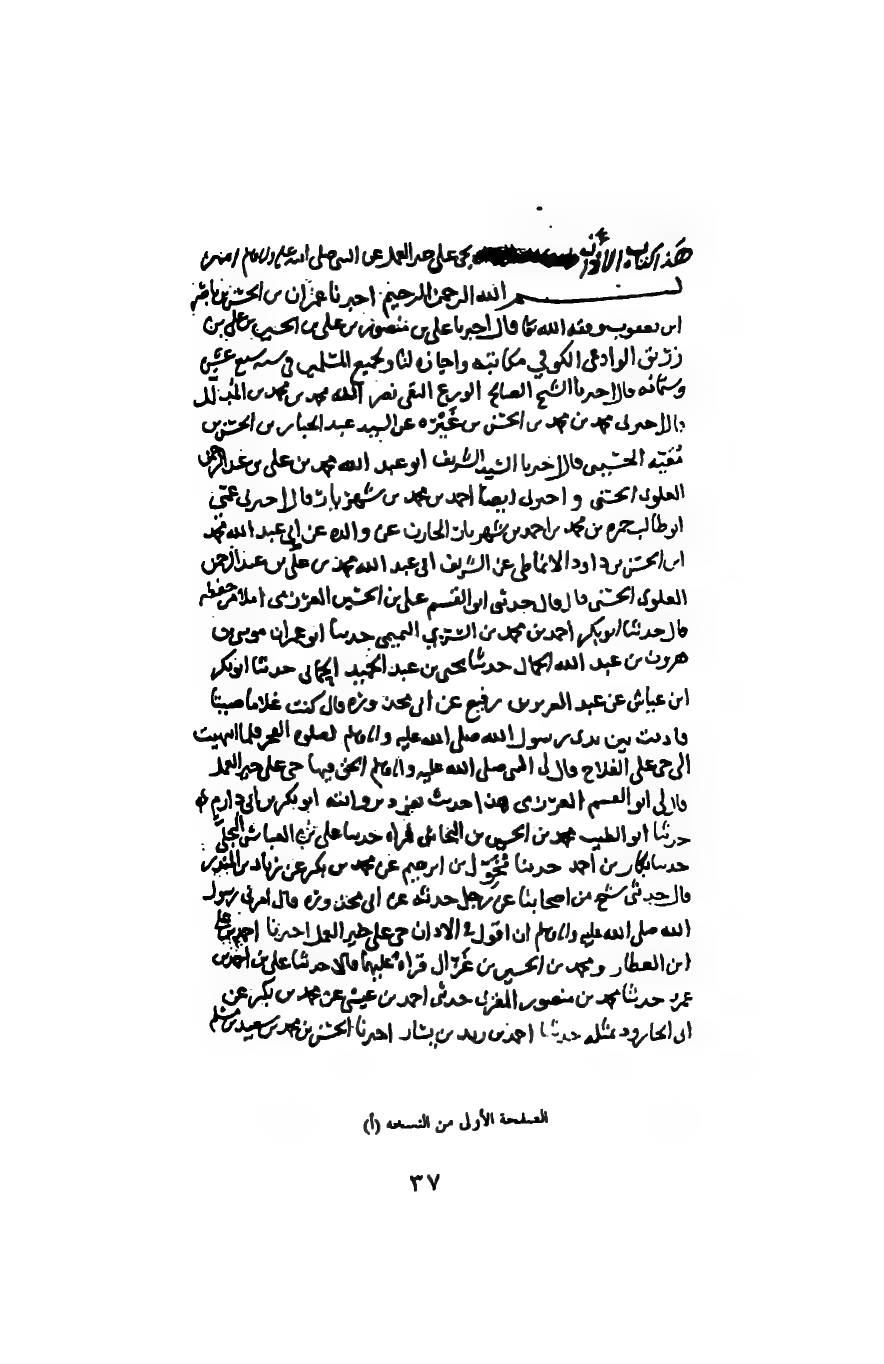 هذا كتاب الأذان بحي على خير العمل عن النبي صلى الله عليه واله وسلم
بسم الله الرحمن الرحيم اخبرنا عمران بن الحسن بن ناصر
ابن يعقوب وفقه الله قال اخبرنا علي بن منصور بن علي بن الحسين بن علي بن
رزيق الوادعي الكوفي مكاتبه واجازه لنا ولجميع المسلمين في سنه سبع عشر
وستمائه قالا اخبرنا الشيخ الصالح الورع التقي نصر الله محمد بن محمد بن المدلل
قالا اخبرني محمد بن محمد بن الحسن بن غبره عن السيد عبد الجبار بن الحسن بن
معيه الحسيني قالا اخبرنا السيد الشريف ابو عبد الله محمد بن علي بن عبد الرحمن
العلوي الحسني واخبرني ايضا احمد بن محمد بن شهريار قال اخبرني عمي
ابو طالب حمزه بن محمد بن احمد بن شهريار الخازن عن والده عن ابي عبد الله محمد
ابن الحسن بن داود الانماطي عن الشريف ابي عبد الله محمد بن علي بن عبد الرحمن
العلوي الحسني قال قال حدثني ابو القسم علي بن الحسين العرزمي املا من حفظه
قال حدثنا ابو بكر احمد بن محمد بن السري التميمي حدثنا ابو عمران موسى بن
هرون بن عبد الله الجمال حدثنا يحيى بن عبد الحميد الحماني حدثنا ابو بكر
ابن عياش عن عبد العزيز بن رفيع عن ابي محذوره قال كنت غلاما صبيا
فاذنت بين يدي رسول الله صلى الله عليه واله وسلم لصلوه الفجر فلما انتهيت
الى حي على الفلاح قال لي النبي صلى الله عليه واله وسلم الحق فيها حي على خير العمل
قال لي ابو القسم العرزمي هذا حديث تفرد بروايته ابو بكر بن ابي دارم
حدثنا ابو الطيب محمد بن الحسين بن النخاس قراه حدثنا علي بن العباس البجلي
حدثنا بكار بن احمد حدثنا مخول بن ابرهيم عن محمد بن بكر عن زياد بن المنذر
قال حدثني شيخ من اصحابنا عن رجل حدثه عن ابي محذوره قال امرني رسول
الله صلى الله عليه واله وسلم ان اقول في الاذان حي على خير العمل اخبرنا احمد بن علي
ابن العطار ومحمد بن الحسين بن غزال قراه عليهما قالا حدثنا علي بن احمد بن
عمرو حدثنا محمد بن منصور المقري حدثني احمد بن عيسى عن محمد بن بكر عن
ابي الجارود بمثله حدثنا احمد بن زيد بن بشار اخبرنا الحسن بن محمد بن سعيد بن مسلم
الصفحة الأولى من النسخه (أ)
٣٧